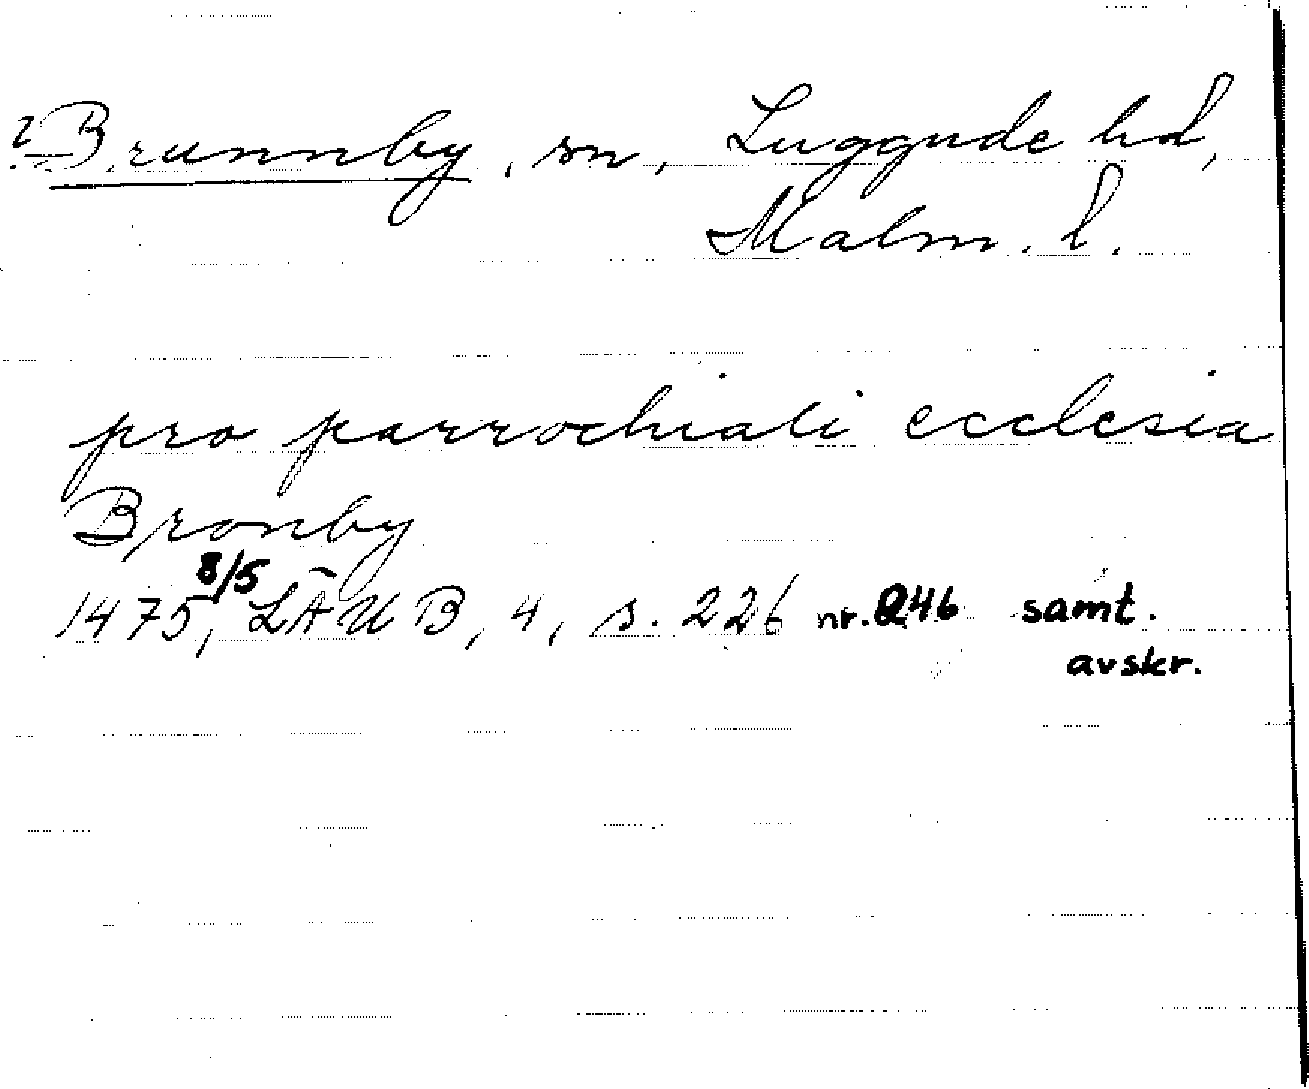 ? Brunnby, sn, Luggude hd,
Malm. l.
pro parrochiali ecclesia
Bronby
1475 8/5, LÄUB, 4, s. 226 nr. 246 samt.
avskr.